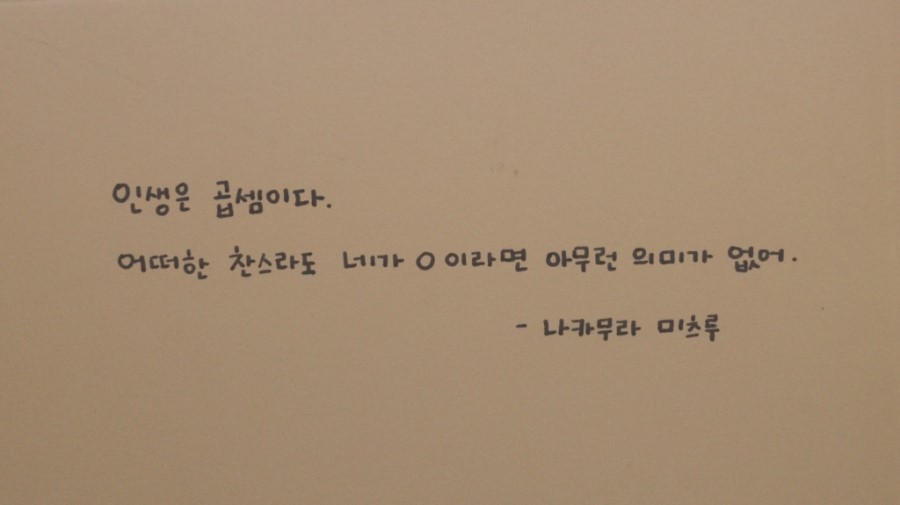 인생은 곱셈이다.
어떠한 찬스라도 네가 0이라면 아무런 의미가 없어.
- 나카무라 미츠루